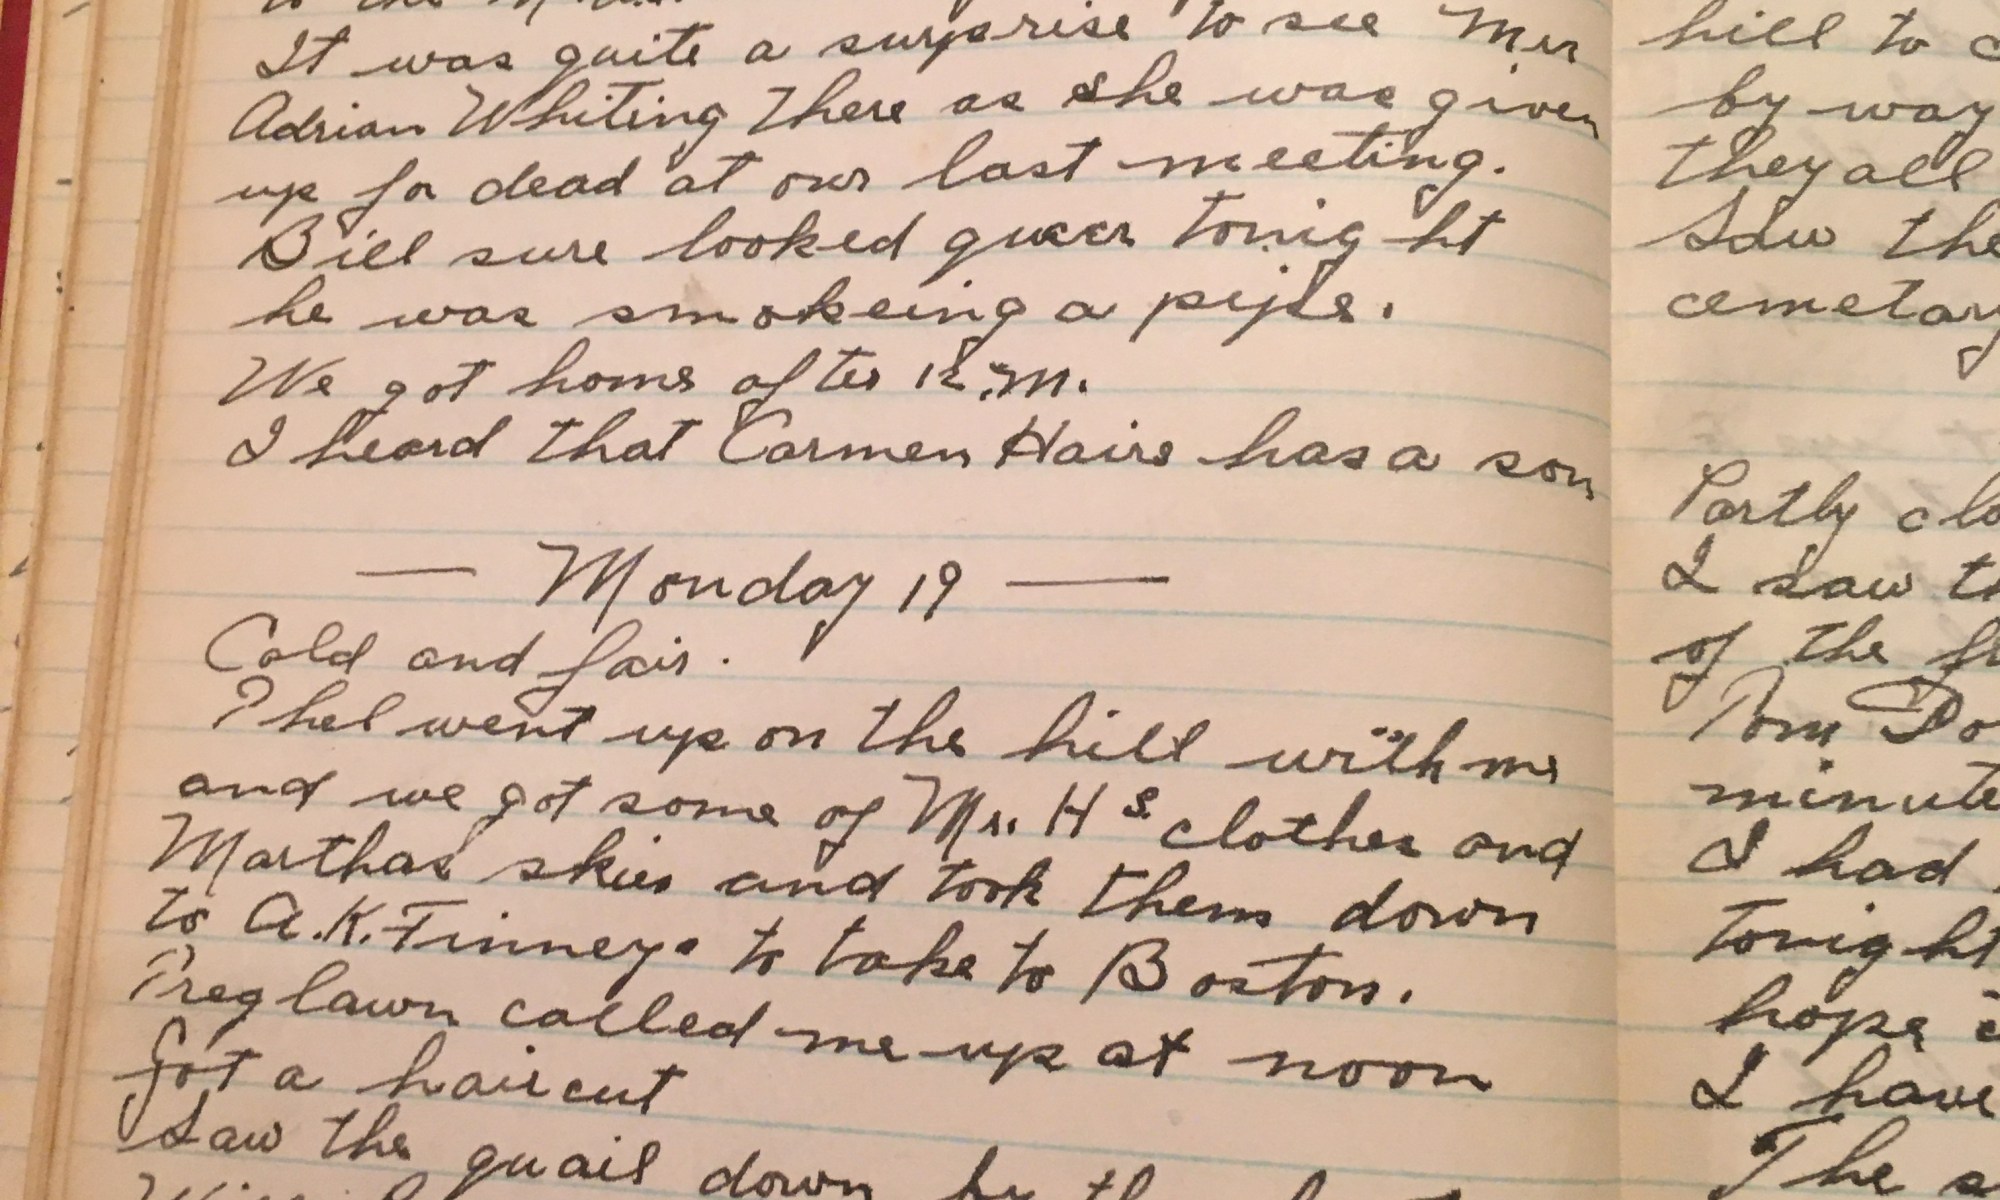 to the
It was quite a surprise to see Mrs
Adrian Whiting there as she was given
up for dead at our last meeting.
Bill sure looked queer tonight
he was smokeing a pipe.
We got home after 12.M.
I heard that Carmen Haire has a son
— Monday 19 —
Cold and fair.
Phel went up on the hill with me
and we got some of Mr. Hs clothes and
Marthas skies and took them down
to A.K. Finneys to take to Boston.
Preg lawn called me up at noon
Got a haircut
Saw the quail down by
hill to
by way
they all
Saw the
cemetary
Partly
I saw
of the
Tom
minute
I had
tonight
hope
I have
The